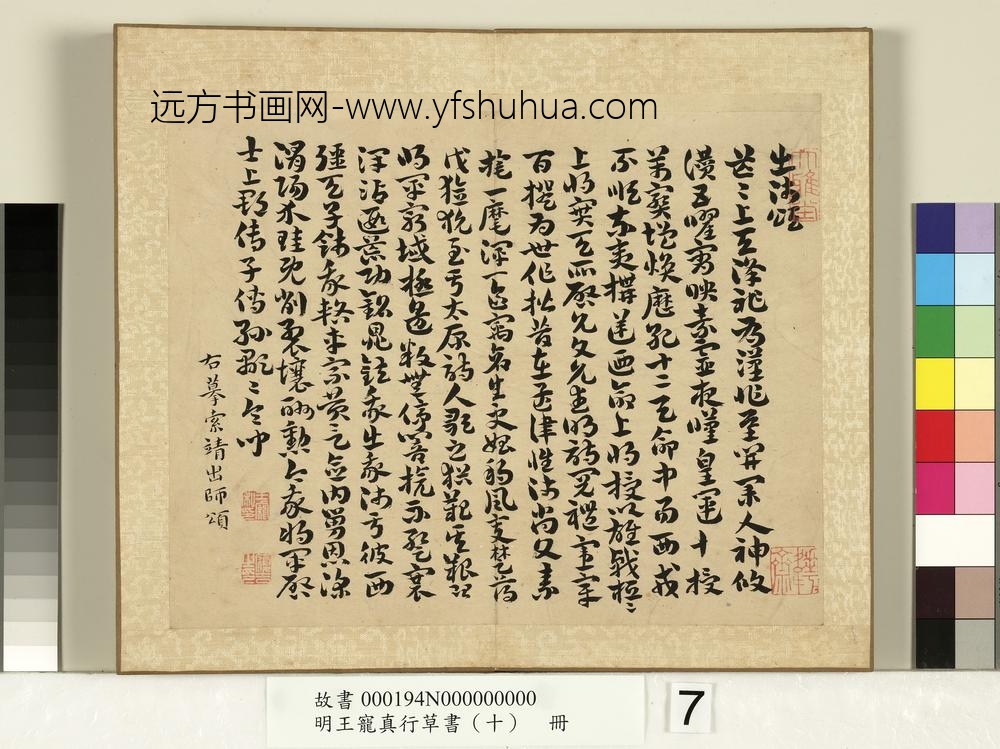 远方书画网-www.yfshuhua.com
出師頌
茫々上天降祉為漢作基開業人神攸
讚五曜宵映素靈夜歎皇運來授
萬寶增煥歷紀十二天命中易西戎
不順東夷構逆西命上將授以雄戟桓々
上將寶天所啟允文允武明詩閱禮憲章
百揆為世作楷昔在孟津惟師尚父素
旄一麾渾一區寓蒼生更始朔風變楚薄
伐獫狁至于太原詩人歌之猶歎其艱況
我將軍窮域極邊鼓無停響旗不蹔褰
澤沾遐荒功銘鼎鉉我出我師于彼西
疆天子餞我輅車乘黃言念伯舅恩深
渭陽介珪既削裂壤酬勳今我將軍啟
土上郡傳子傳孫顯々令問
右摹索靖出師頌
故書 000194N000000000
明王寵真行草書（十） 冊
7